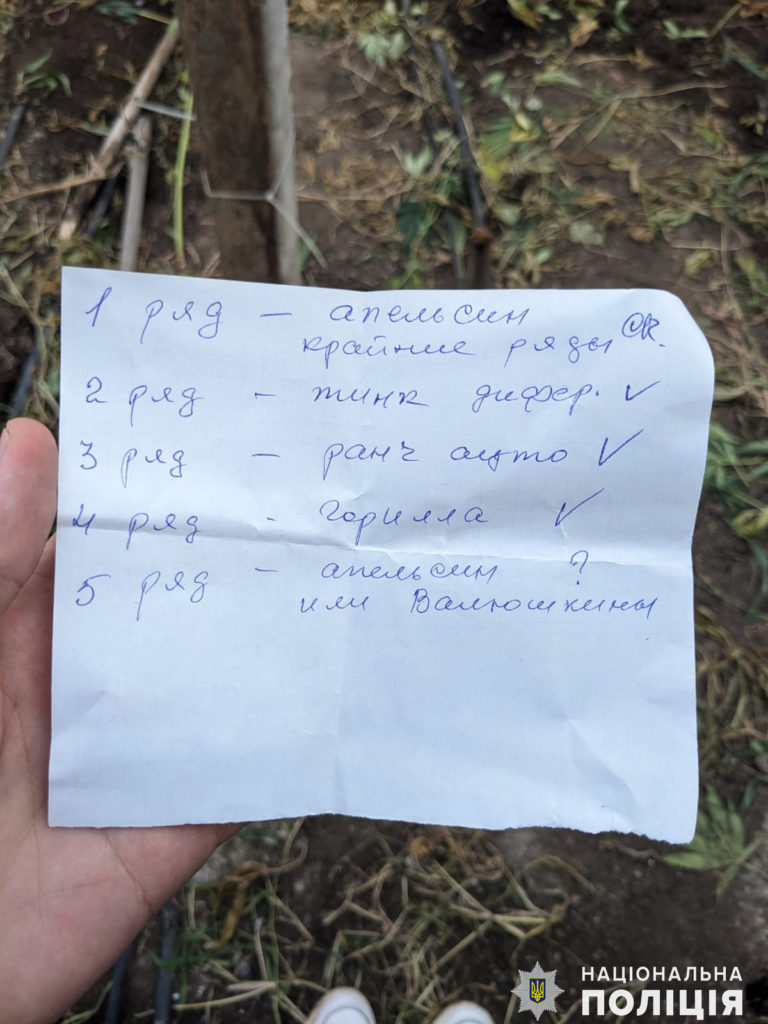 1 ряд – апельсин
крайние ряды
2 ряд – пинк дифер. ✓
3 ряд – ранч ауто ✓
4 ряд - горилла ✓
5 ряд – апельсин ?
или Валюшкины
НАЦІОНАЛЬНА
ПОЛІЦІЯ